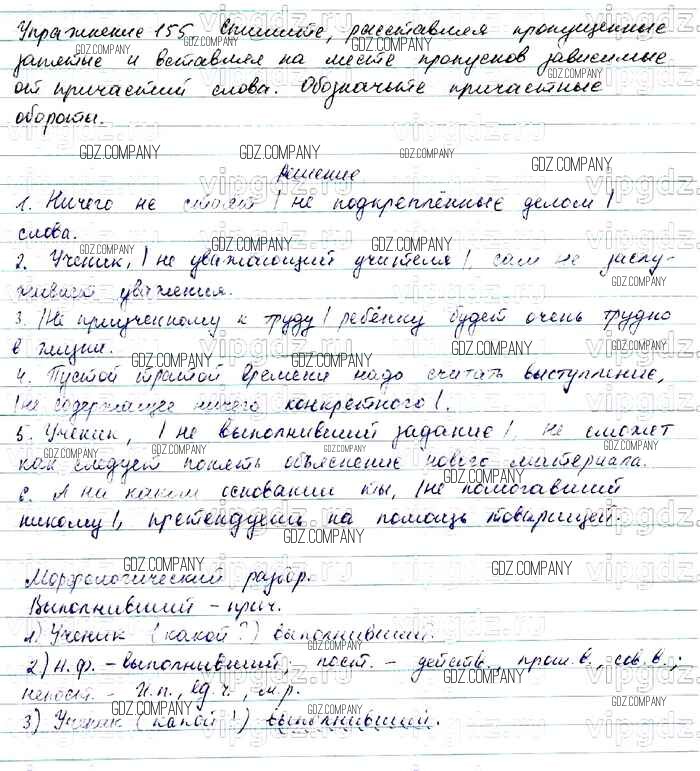 Упражнение 155 Спишите, расставляя пропущенные
запятые и вставляя на месте пропусков зависимые
от причастий слова. Обозначьте причастные
обороты.
Решение
1. Ничего не стоят | не подкреплённые делом |
слова.
2. Ученик, | не уважающий учителя |, сам не заслу-
живает уважения.
3. |Не приученному к труду | ребёнку будет очень трудно
в жизни.
4. Пустой тратой времени надо считать выступление,
|не содержащее ничего конкретного |.
5. Ученик, | не выполнивший задание |, не сможет
как следует понять объяснение нового материала.
6. А на каком основании ты, |не помогавший
никому |, претендуешь на помощь товарищей.
Морфологический разбор.
Выполнивший - прич.
1) Ученик (какой?) выполнивший.
2) Н.ф. - выполнивший; пост. - действ., прош.в., сов.в.;
непост. - И.п., ед.ч., м.р.
3) Ученик (какой?) выполнивший.
GDZ.COMPANY
vipgdz.ru